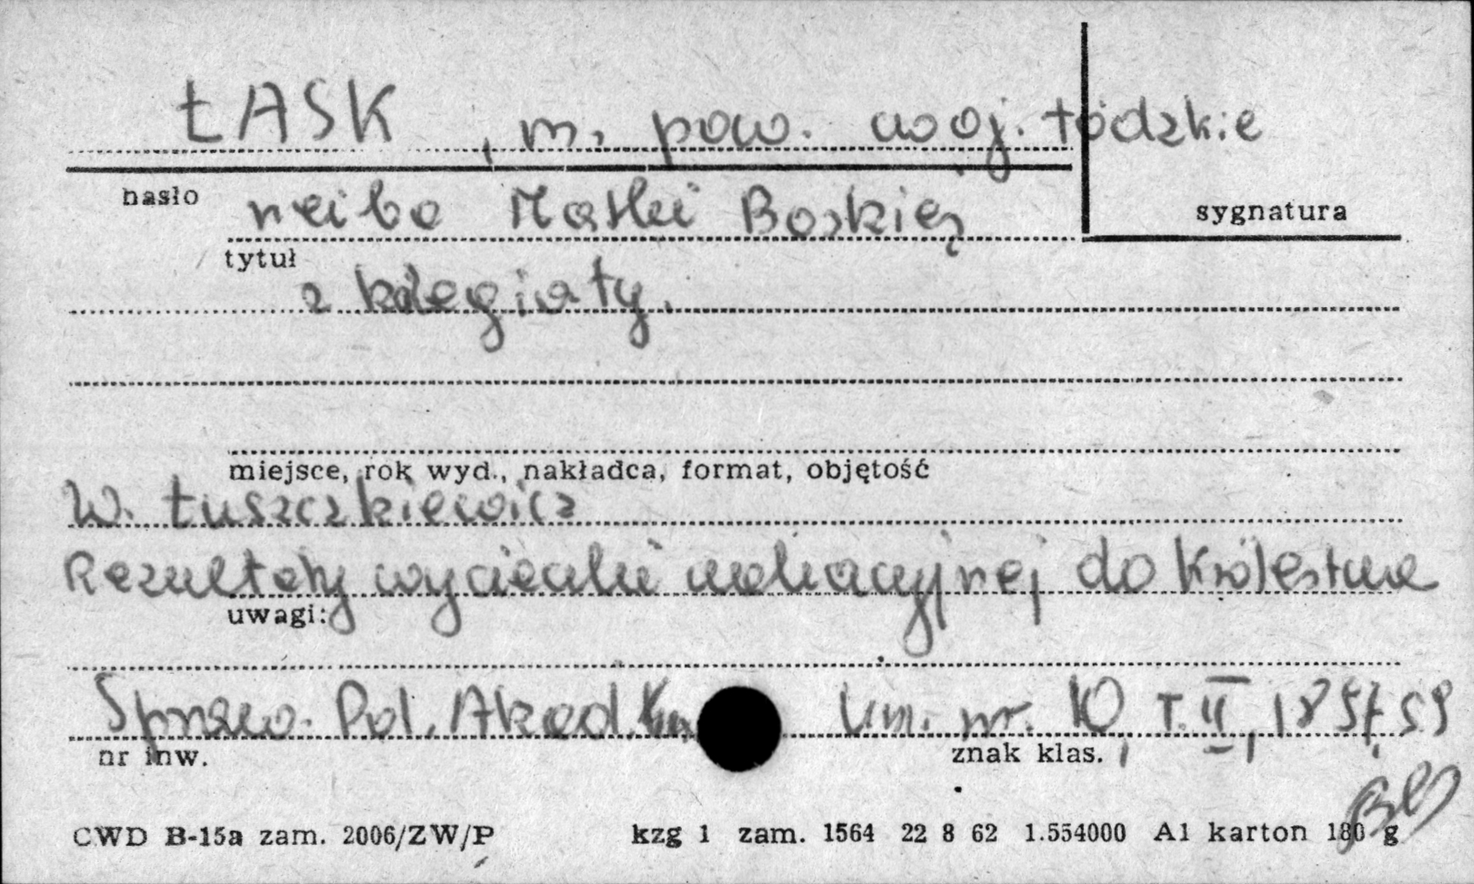 ŁASK, m. pow. woj. łódzkie
hasło
sygnatura
rzeźba Matki Boskiej
tytuł
z kolegiaty.
miejsce, rok wyd., nakładca, format, objętość
W. Łuszczkiewicz
Rezultaty wycieczki wakacyjnej do Królestwa
uwagi:
Spraw. Pol. Akad. Um. nr. 10, T. II, 1857, 59
nr inw.
znak klas.
CWD B-15a zam. 2006/ZW/P
kzg 1 zam. 1564 22 8 62 1.554000 A1 karton 180 g